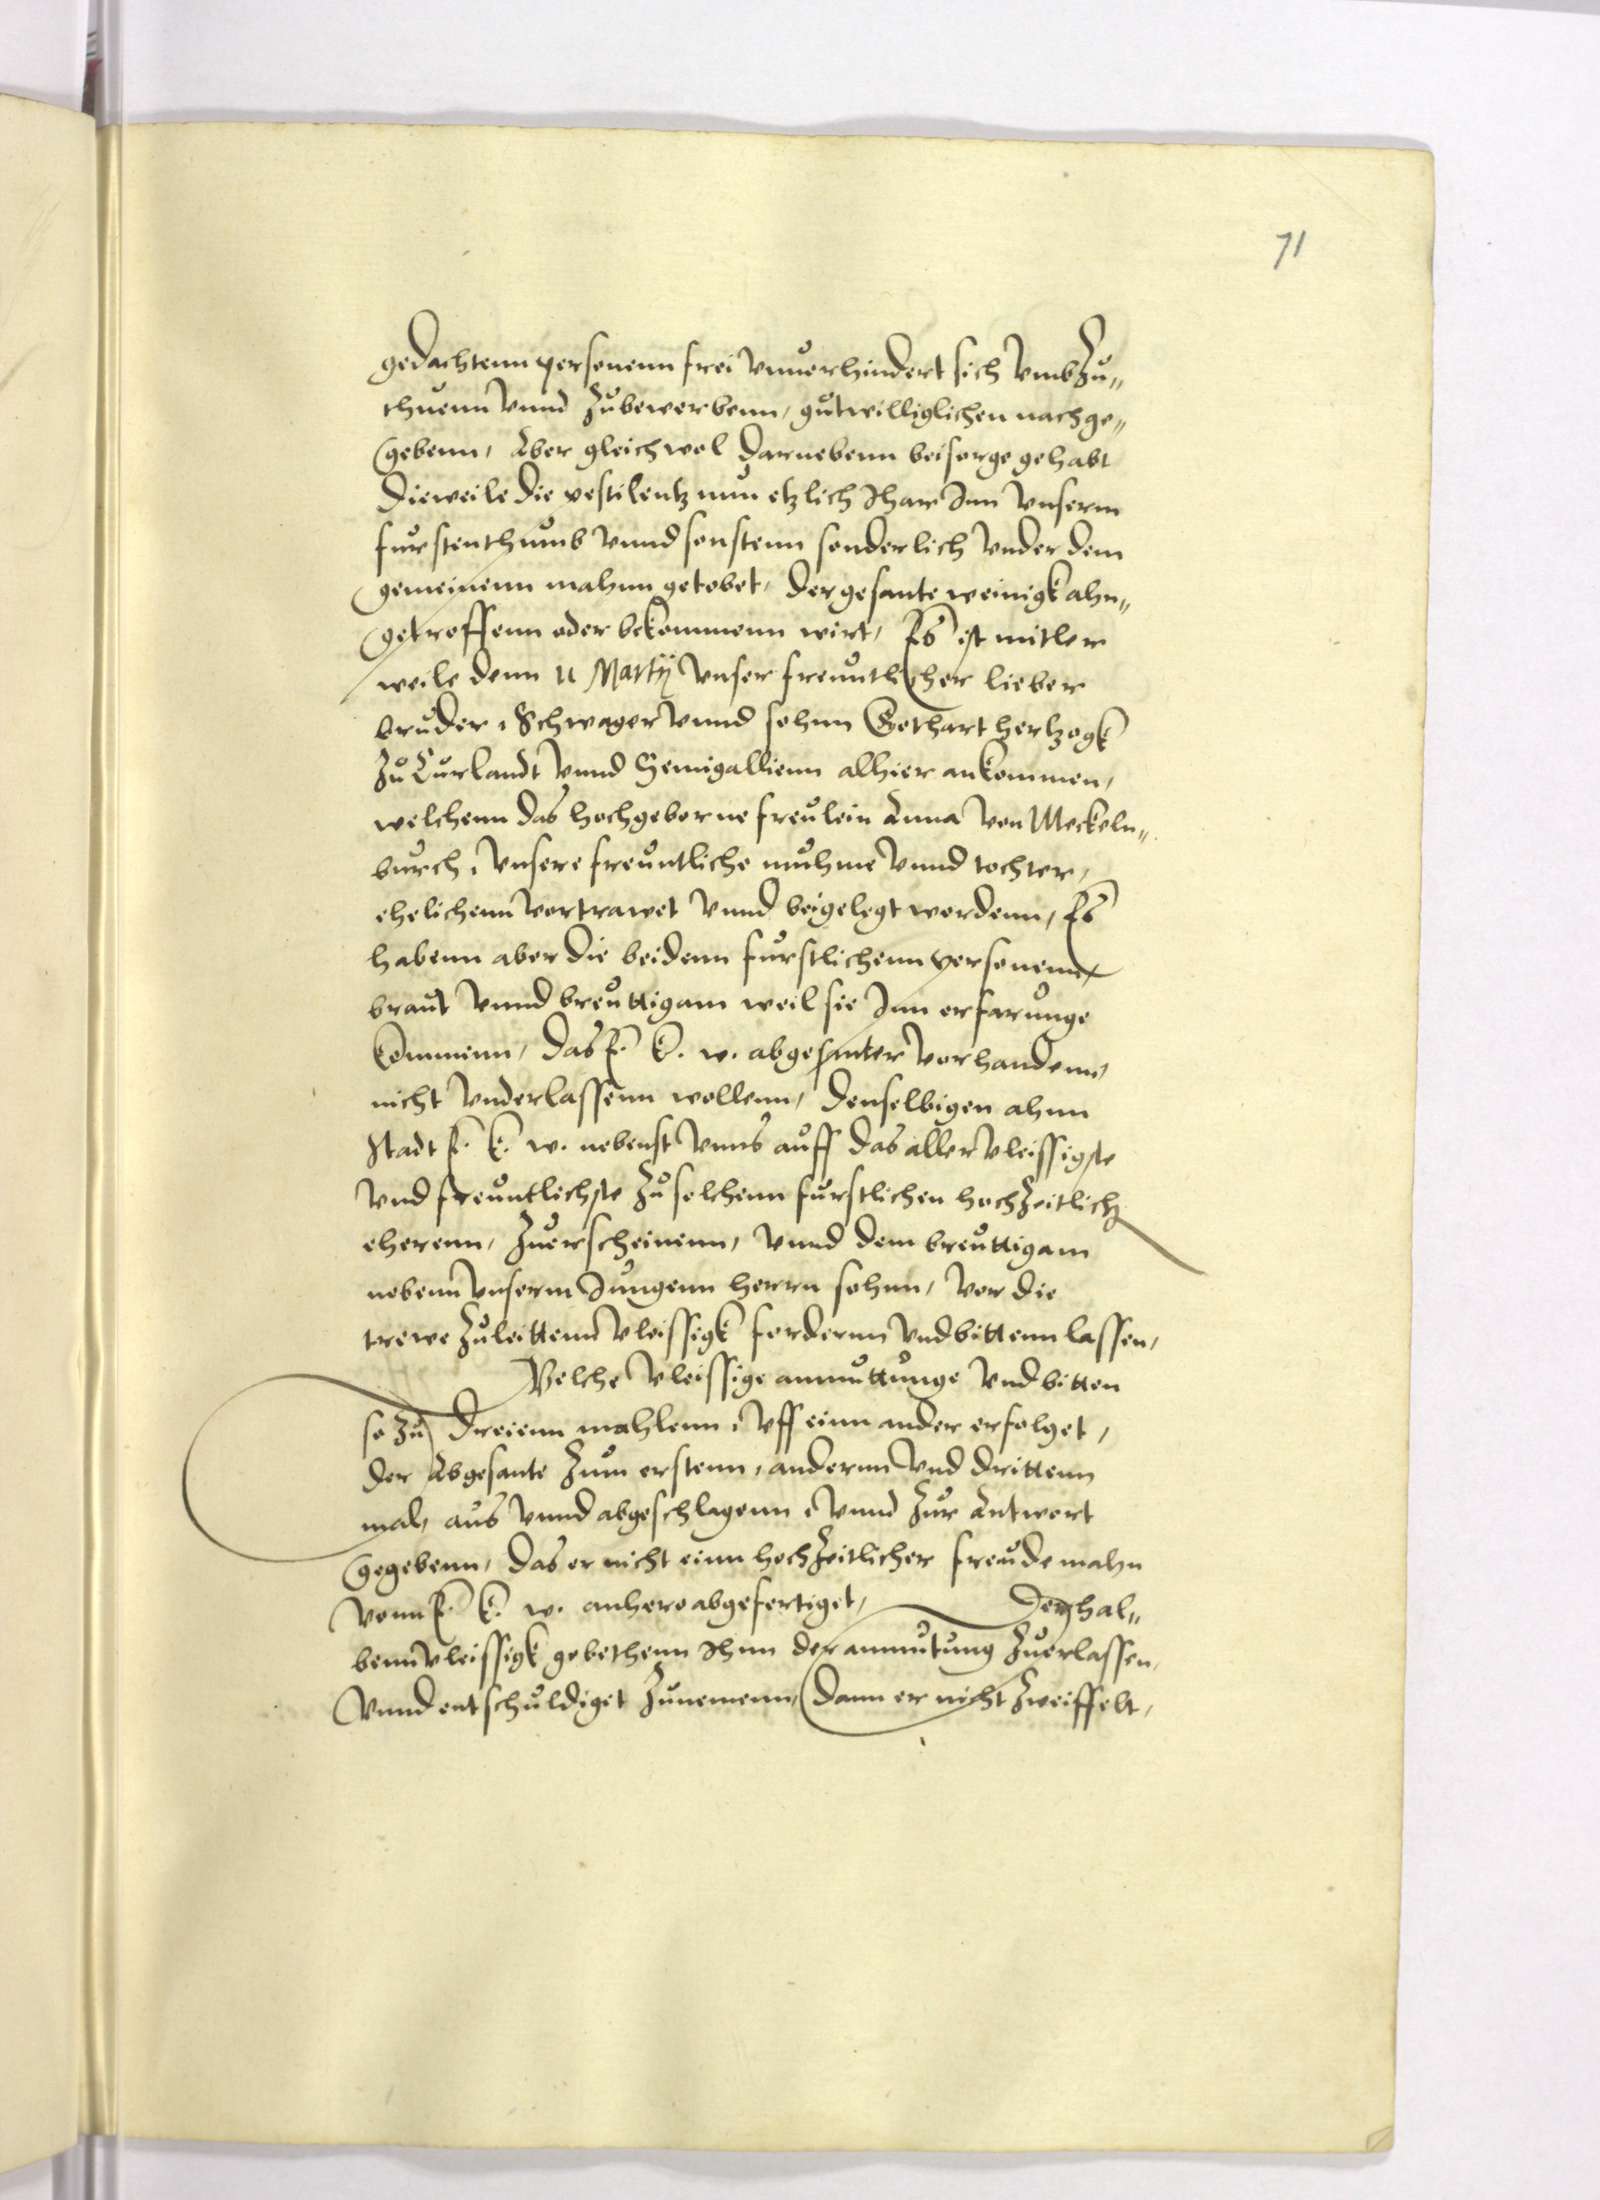 71
gedachtenn personenn frei vnuerhindert sich vmbzu„
thuenn vnnd zubewerbenn, gutwilliglichen nachge„
gebenn, Aber gleichwol darnebenn beisorge gehabt
dieweile die pestilentz nun etzlich Jhar Inn vnserm
furstenthumb vnnd sonstenn sonderlich vnder dem
gemeinenn mahnn getobet, der gesante weinigk ahn„
getroffenn oder bekommenn wirt, Es ist mitler
weile denn 11 Martij vnser freuntlicher lieber
bruder, Schwager vnnd sohnn Gothart hertzogk
zu Curlandt vnnd Semigallienn alhier ankommen,
welchenn das hochgeborne freulein Anna von Meckeln„
burch, vnsere freuntliche muhme vnnd tochter,
ehelichenn vortrawet vnnd beigelegt wordenn, Es
habenn aber die beidenn furstlichenn personenn
braut vnnd breuttigam weil sie Inn erfarunge
kommenn, das E. k. w. abgesanter vorhandenn,
nicht vnderlassenn wollenn, denselbigen ahnn
Stadt E. k. w. nebenst vnns auff das aller vleissigste
vnd freuntlichste zu solchenn furstlichen hochzeitlich
eherenn, zuerscheinenn, vnnd dem breuttigam
nebenn vnserm Jungenn herrn sohnn, vor die
trewe zuleittenn vleissigk fordernn vnd bittenn lassen,
Welche vleissige anmuttunge vnd bitten
so zu dreienn mahlenn, vff einn ander erfolget,
der Abgesante zum erstenn, andernn vnd drittenn
mal, aus vnnd abgeschlagenn, vnnd zur Antwort
gegebenn, das er nicht einn hochzeitlicher freude mahn
vonn E. k. w. anhero abgefertiget, Derhal„
benn vleissigk gebethenn Ihnn der anmutung zuerlassen,
vnnd entschuldiget zunemenn, dann er nicht zweiffelt,